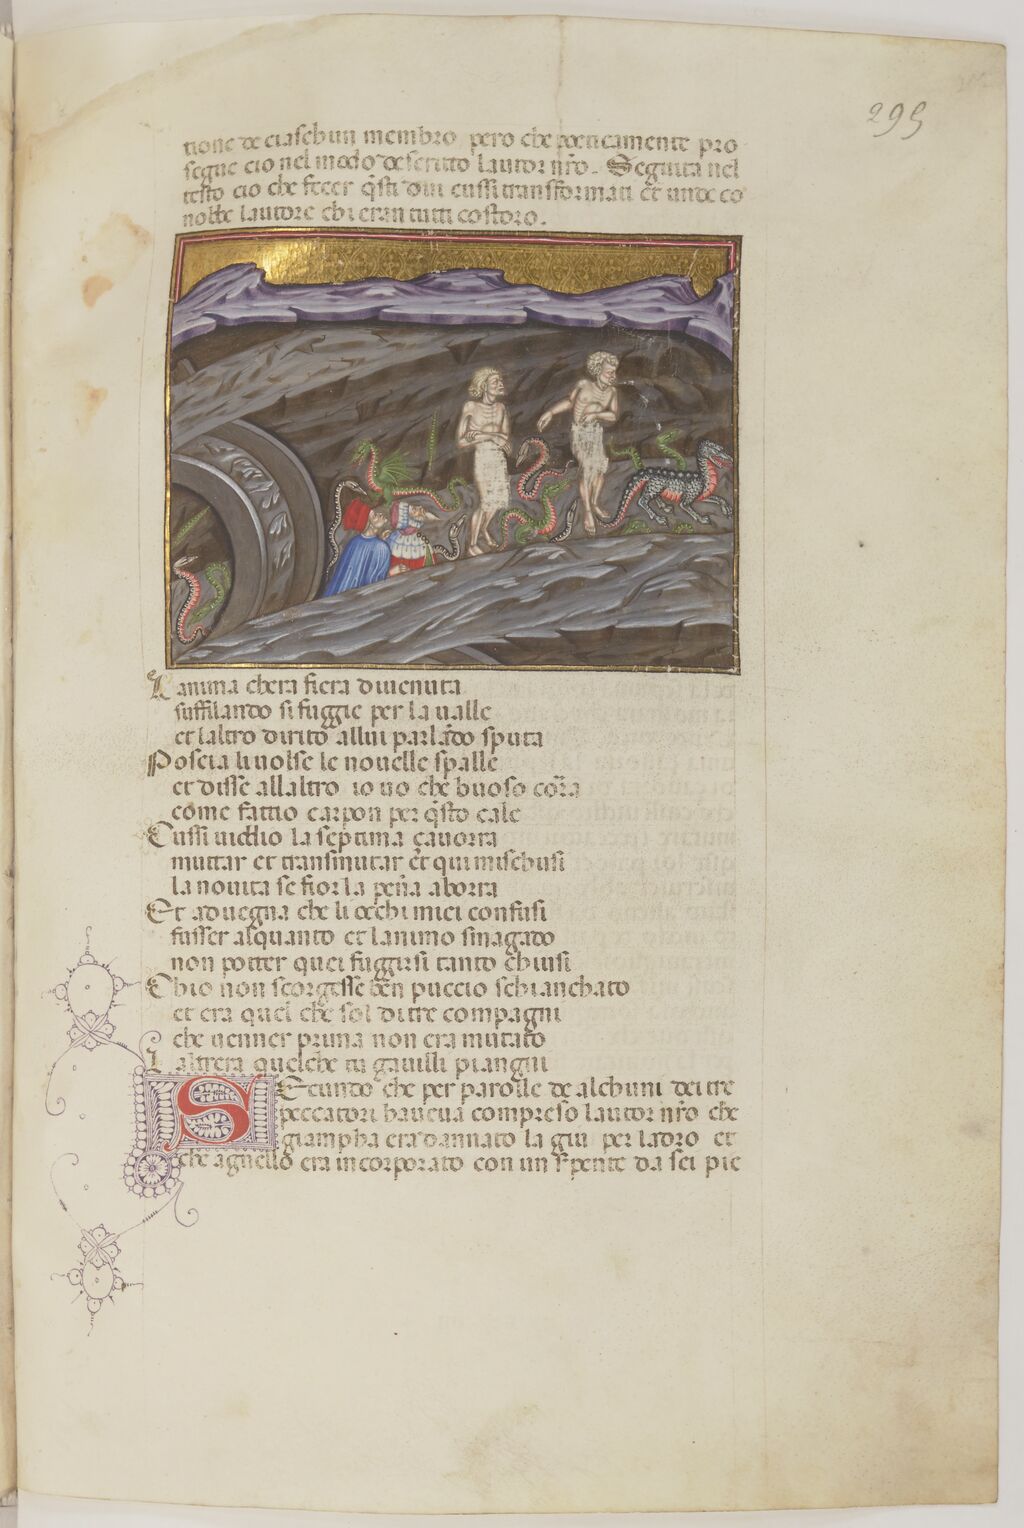 295
tione de ciaschun membro pero che poeticamente pro
segue cio nel modo descritto lautor nr̃o. Seguita nel
testo cio che fecer q̃sti dui cussi transformati et unde co
nobbe lautore chi eran tutti costoro.
Lanima chera fiera diuenuta
suffilando si fuggie per la ualle
et laltro dirito allui parlãdo sputa
Poscia li uolse le nouelle spalle
et disse allaltro io uo che buoso cor̃a
come fattio carpon per q̃sto calle
Cussi uiddio la septima çauorra
muttar et transmutar et qui mi schusi
la nouita se fior la peña aborra
Et aduegna che li occhi miei confusi
fusser alquanto et lanimo smagado
non potter quei fuggirsi tanto chiusi
Chio non scorgesse ben puccio schianchato
et era quel che sol di tre compagni
che uenner prima non era mutato
Laltrera quelche tu gauilli piangni
Secundo che per parolle de alchuni dei tre
peccatori haueua compreso lautor nr̃o che
giampha era dannato la giu per ladro et
che agnello era incorporato con un s̃pente da sei pie